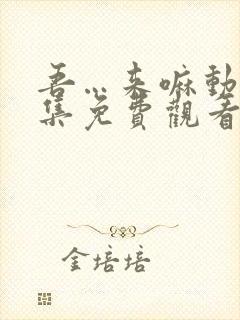 吾…来嘛動
集免費觀看
金培培